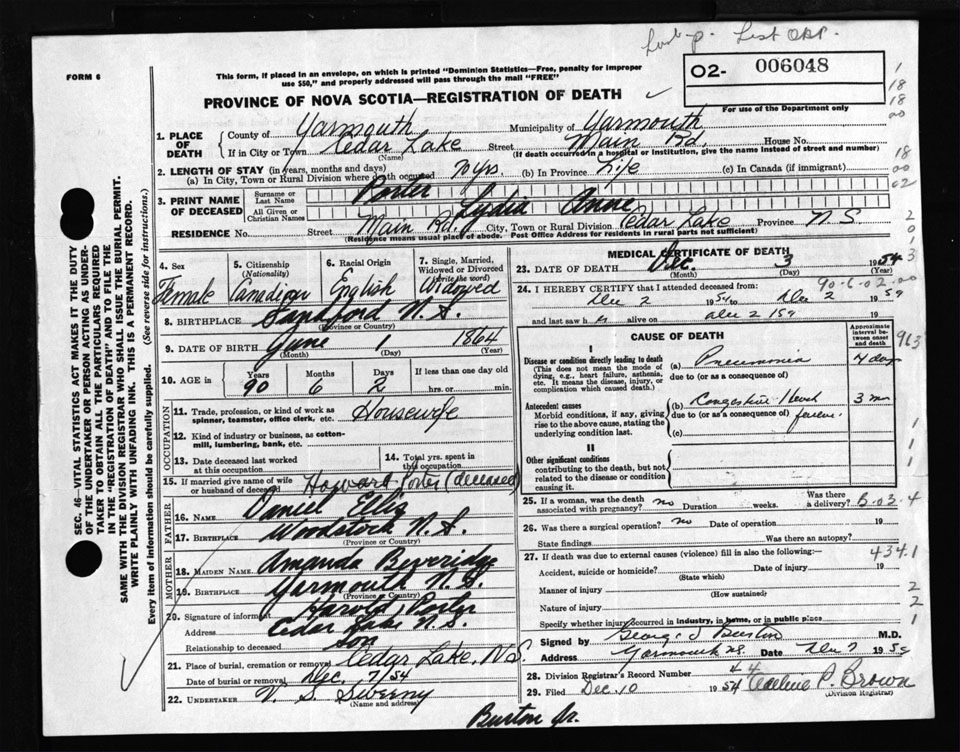 FORM 6
This form, if placed in an envelope, on which is printed "Dominion Statistics—Free, penalty for improper
use $50," and properly addressed will pass through the mail "FREE"
PROVINCE OF NOVA SCOTIA—REGISTRATION OF DEATH
O2- 006048
For use of the Department only
1. PLACE OF DEATH
County of Yarmouth Municipality of Yarmouth
If in City or Town Cedar Lake Street Main Rd, House No.
(Name) (If death occurred in a hospital or institution, give the name instead of street and number)
2. LENGTH OF STAY (in years, months and days)
(a) In City, Town or Rural Division where death occurred 70 yrs. (b) In Province Life (c) In Canada (if immigrant)
3. PRINT NAME OF DECEASED
Surname or Last Name Porter
All Given or Christian Names Lydia Anne
RESIDENCE No. Street Main Rd. City, Town or Rural Division Cedar Lake Province N.S.
(Residence means usual place of abode. Post Office Address for residents in rural parts not sufficient)
4. Sex Female
5. Citizenship (Nationality) Canadian
6. Racial Origin English
7. Single, Married, Widowed or Divorced (write the word) Widowed
8. BIRTHPLACE Sandford N.S.
(Province or Country)
9. DATE OF BIRTH June 1 1864
(Month) (Day) (Year)
10. AGE in Years Months Days If less than one day old
90 6 2 hrs. or min.
OCCUPATION
11. Trade, profession, or kind of work as spinner, teamster, office clerk, etc. Housewife
12. Kind of industry or business, as cotton-mill, lumbering, bank, etc.
13. Date deceased last worked at this occupation
14. Total yrs. spent in this occupation
15. If married give name of wife or husband of deceased Howard Porter (deceased)
FATHER
16. NAME Daniel Ellis
17. BIRTHPLACE Woodstock N.S.
(Province or Country)
MOTHER
18. MAIDEN NAME Amanda Beveridge
19. BIRTHPLACE Yarmouth N.S.
(Province or Country)
20. Signature of informant Harold Porter
Address Cedar Lake N.S.
Relationship to deceased son
21. Place of burial, cremation or removal Cedar Lake, N.S.
Date of burial or removal Dec. 7/54
22. UNDERTAKER V. S. Sweeny
(Name and address)
MEDICAL CERTIFICATE OF DEATH
23. DATE OF DEATH Dec. 3 1954
(Month) (Day) (Year)
24. I HEREBY CERTIFY that I attended deceased from:
90-6-02-00
Dec 2 1954 to Dec 2 1954
and last saw h alive on Dec 2 1954
CAUSE OF DEATH
Approximate interval between onset and death
I
Disease or condition directly leading to death
(This does not mean the mode of dying, e.g., heart failure, asthenia, etc. It means the disease, injury, or complication which caused death.)
(a) Pneumonia 4 days
due to (or as a consequence of)
Antecedent causes
Morbid conditions, if any, giving rise to the above cause, stating the underlying condition last.
(b) Congestive Heart 3 mo
due to (or as a consequence of) failure
(c)
II
Other significant conditions
contributing to the death, but not related to the disease or condition causing it.
25. If a woman, was the death associated with pregnancy? no Duration weeks. Was there a delivery? B-03-4
26. Was there a surgical operation? no Date of operation 19
State findings Was there an autopsy?
27. If death was due to external causes (violence) fill in also the following:—
434.1
Accident, suicide or homicide? Date of injury 19
(State which)
Manner of injury
(How sustained)
Nature of injury
Specify whether injury occurred in industry, in home, or in public place
Signed by George J Burton M.D.
Address Yarmouth NS. Date Dec 7 1954
28. Division Registrar's Record Number 44
29. Filed Dec. 10 1954 P. Brown
(Division Registrar)
Burton Jr.
SEC. 46—VITAL STATISTICS ACT MAKES IT THE DUTY
OF THE UNDERTAKER OR PERSON ACTING AS UNDER-
TAKER TO OBTAIN ALL THE PARTICULARS REQUIRED
IN THE "REGISTRATION OF DEATH" AND TO FILE THE
SAME WITH THE DIVISION REGISTRAR WHO SHALL ISSUE THE BURIAL PERMIT.
WRITE PLAINLY WITH UNFADING INK. THIS IS A PERMANENT RECORD.
Every item of information should be carefully supplied. (See reverse side for instructions.)
1
18
18
00
18
00
02
2
0
1
3
963
1
1
2
2
1